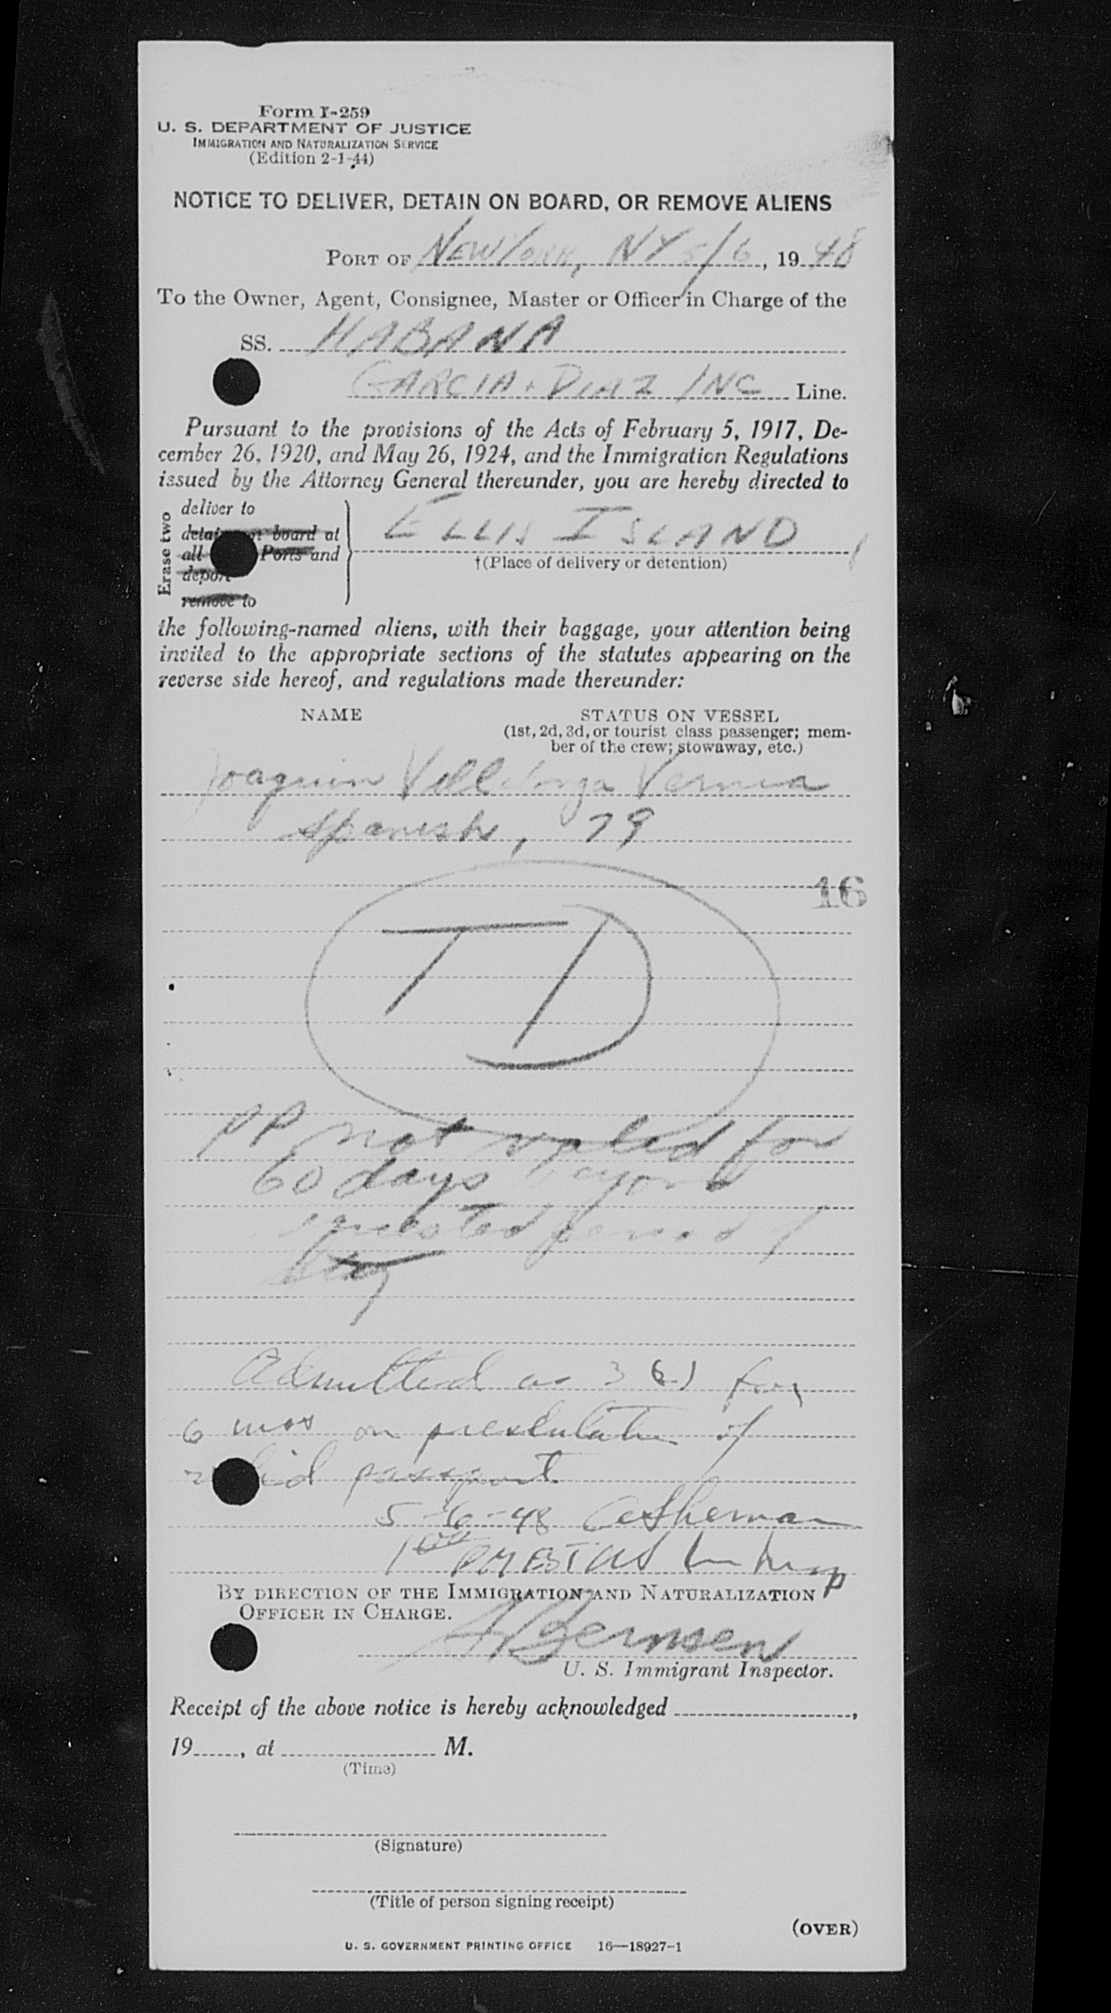 Form I-259
U. S. DEPARTMENT OF JUSTICE
IMMIGRATION AND NATURALIZATION SERVICE
(Edition 2-1-44)
NOTICE TO DELIVER, DETAIN ON BOARD, OR REMOVE ALIENS
PORT OF NEW YORK, NY 5/6, 1948
To the Owner, Agent, Consignee, Master or Officer in Charge of the
SS. HABANA
GARCIA + DIAZ INC Line.
Pursuant to the provisions of the Acts of February 5, 1917, De-
cember 26, 1920, and May 26, 1924, and the Immigration Regulations
issued by the Attorney General thereunder, you are hereby directed to
Erase two
deliver to
detain on board at
all Ports and
deport
remove to
ELLIS ISLAND
†(Place of delivery or detention)
the following-named aliens, with their baggage, your attention being
invited to the appropriate sections of the statutes appearing on the
reverse side hereof, and regulations made thereunder:
NAME STATUS ON VESSEL
(1st, 2d, 3d, or tourist class passenger; mem-
ber of the crew; stowaway, etc.)
Joaquin Vernia
Spanish, 79
16
TD
PP not valid for
60 days beyond
period
stay
Admitted as 3 for
6 mos on presentation of
valid passport
5-6-48 Sherman
BY DIRECTION OF THE IMMIGRATION AND NATURALIZATION
OFFICER IN CHARGE.
U. S. Immigrant Inspector.
Receipt of the above notice is hereby acknowledged ,
19 , at M.
(Time)
(Signature)
(Title of person signing receipt)
(OVER)
U. S. GOVERNMENT PRINTING OFFICE 16—18927-1